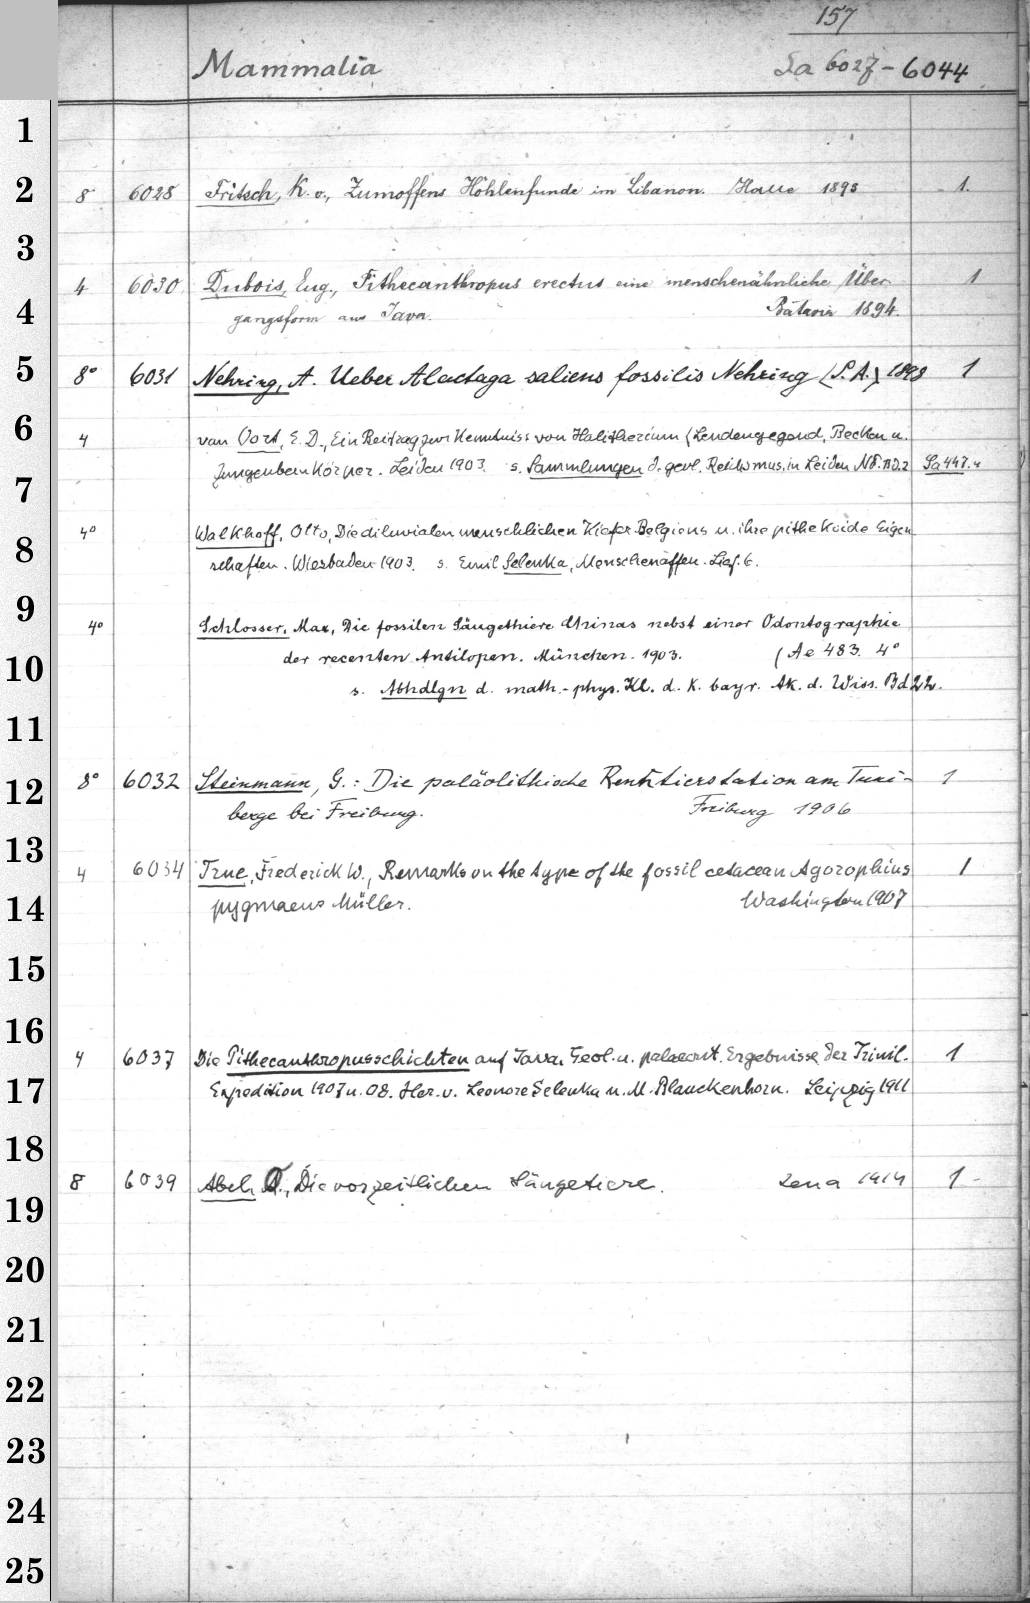 157
Mammalia Sa 6027 - 6044
1
2 8 6028 Fritsch, K. v., Zumoffens Höhlenfunde im Libanon. Halle 1893 1.
3
4 6030 Dubois, Eug., Pithecanthropus erectus eine menschenähnliche Über- 1
4 gangsform aus Java. Batavia 1894.
5 8° 6031 Nehring, A. Ueber Alactaga saliens fossilis Nehring (S.A.) 1898 1
6 4 van Oort, E. D., Ein Beitrag zur Kenntniss von Halitherium (Lendengegend, Becken u.
7 Zungenbeinkörper. Leiden 1903. s. Sammlungen d. geol. Reichsmus. in Leiden N.F. Bd. 2 Sa 447. 4
8 4° Walkhoff, Otto, Die diluvialen menschlichen Kiefer Belgiens u. ihre pithekoide Eigen
schaften. Wiesbaden 1903. s. Emil Selenka, Menschenaffen. Lief. 6.
9 4° Schlosser, Max, Die fossilen Säugethiere Chinas nebst einer Odontographie
10 der recenten Antilopen. München. 1903. (Ae 483. 4°
s. Abhdlgn d. math.-phys. Kl. d. K. bayr. Ak. d. Wiss. Bd 22.
11
12 8° 6032 Steinmann, G.: Die paläolithische Renntierstation am Tuni- 1
berge bei Freiburg. Freiburg 1906
13 4 6034 True, Frederick W., Remarks on the type of the fossil cetacean Agorophius 1
14 pygmaeus Müller. Washington 1907
15
16 4 6037 Die Pithecanthropusschichten auf Java. Geol. u. palaeont. Ergebnisse der Trinil- 1
17 Expedition 1907 u. 08. Her. v. Leonore Selenka u. M. Blanckenhorn. Leipzig 1911
18
19 8 6039 Abel, O., Die vorzeitlichen Säugetiere. Jena 1914 1
20
21
22
23
24
25